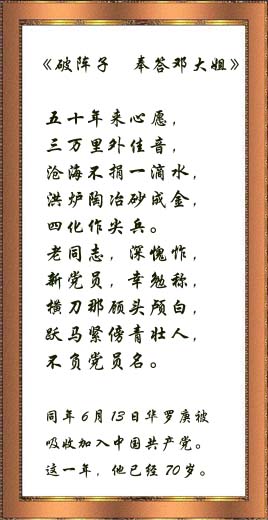 《破阵子 奉答邓大姐》
五十年来心愿，
三万里外佳音，
沧海不捐一滴水，
洪炉陶冶砂成金，
四化作尖兵。
老同志，深愧怍，
新党员，幸勉称，
横刀那顾头颅白，
跃马紧傍青壮人，
不负党员名。
同年6月13日华罗庚被
吸收加入中国共产党。
这一年，他已经70岁。